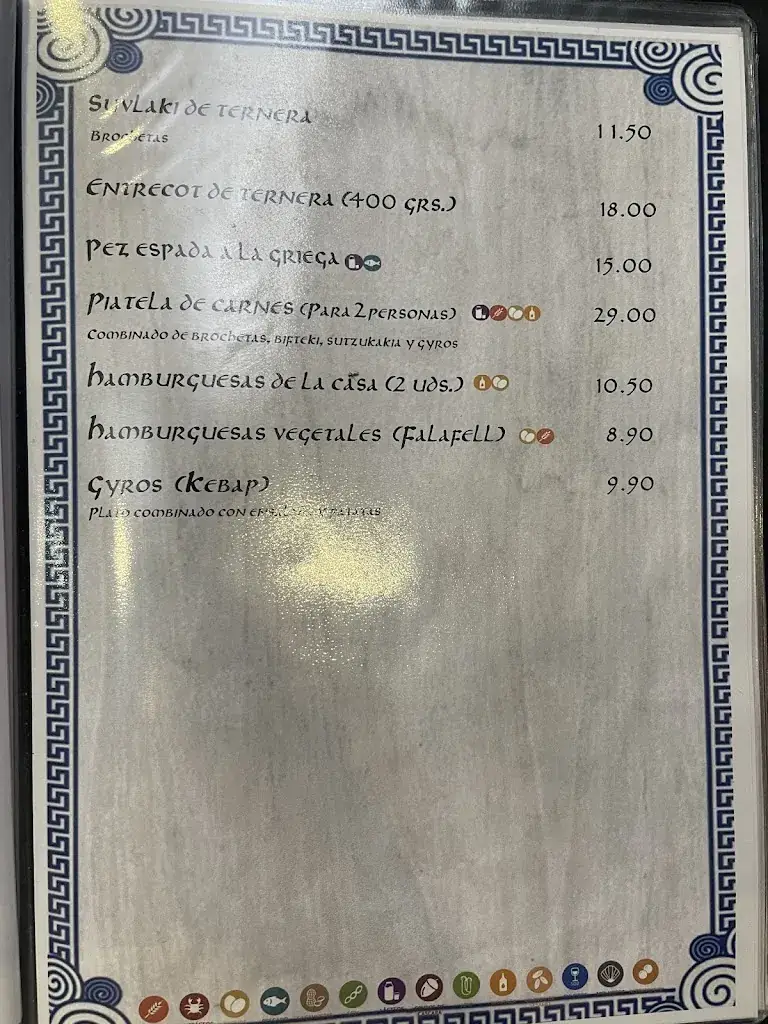 Suvlaki de ternera
11.50
Brochetas
Entrecot de ternera (400 grs.)
18.00
Pez espada a la griega
15.00
Piatela de carnes (para 2 personas)
29.00
Combinado de brochetas, bifteki, sutzukakia y gyros
Hamburguesas de la casa (2 uds.)
10.50
Hamburguesas vegetales (Falafell)
8.90
Gyros (Kebap)
9.90
Plato combinado con